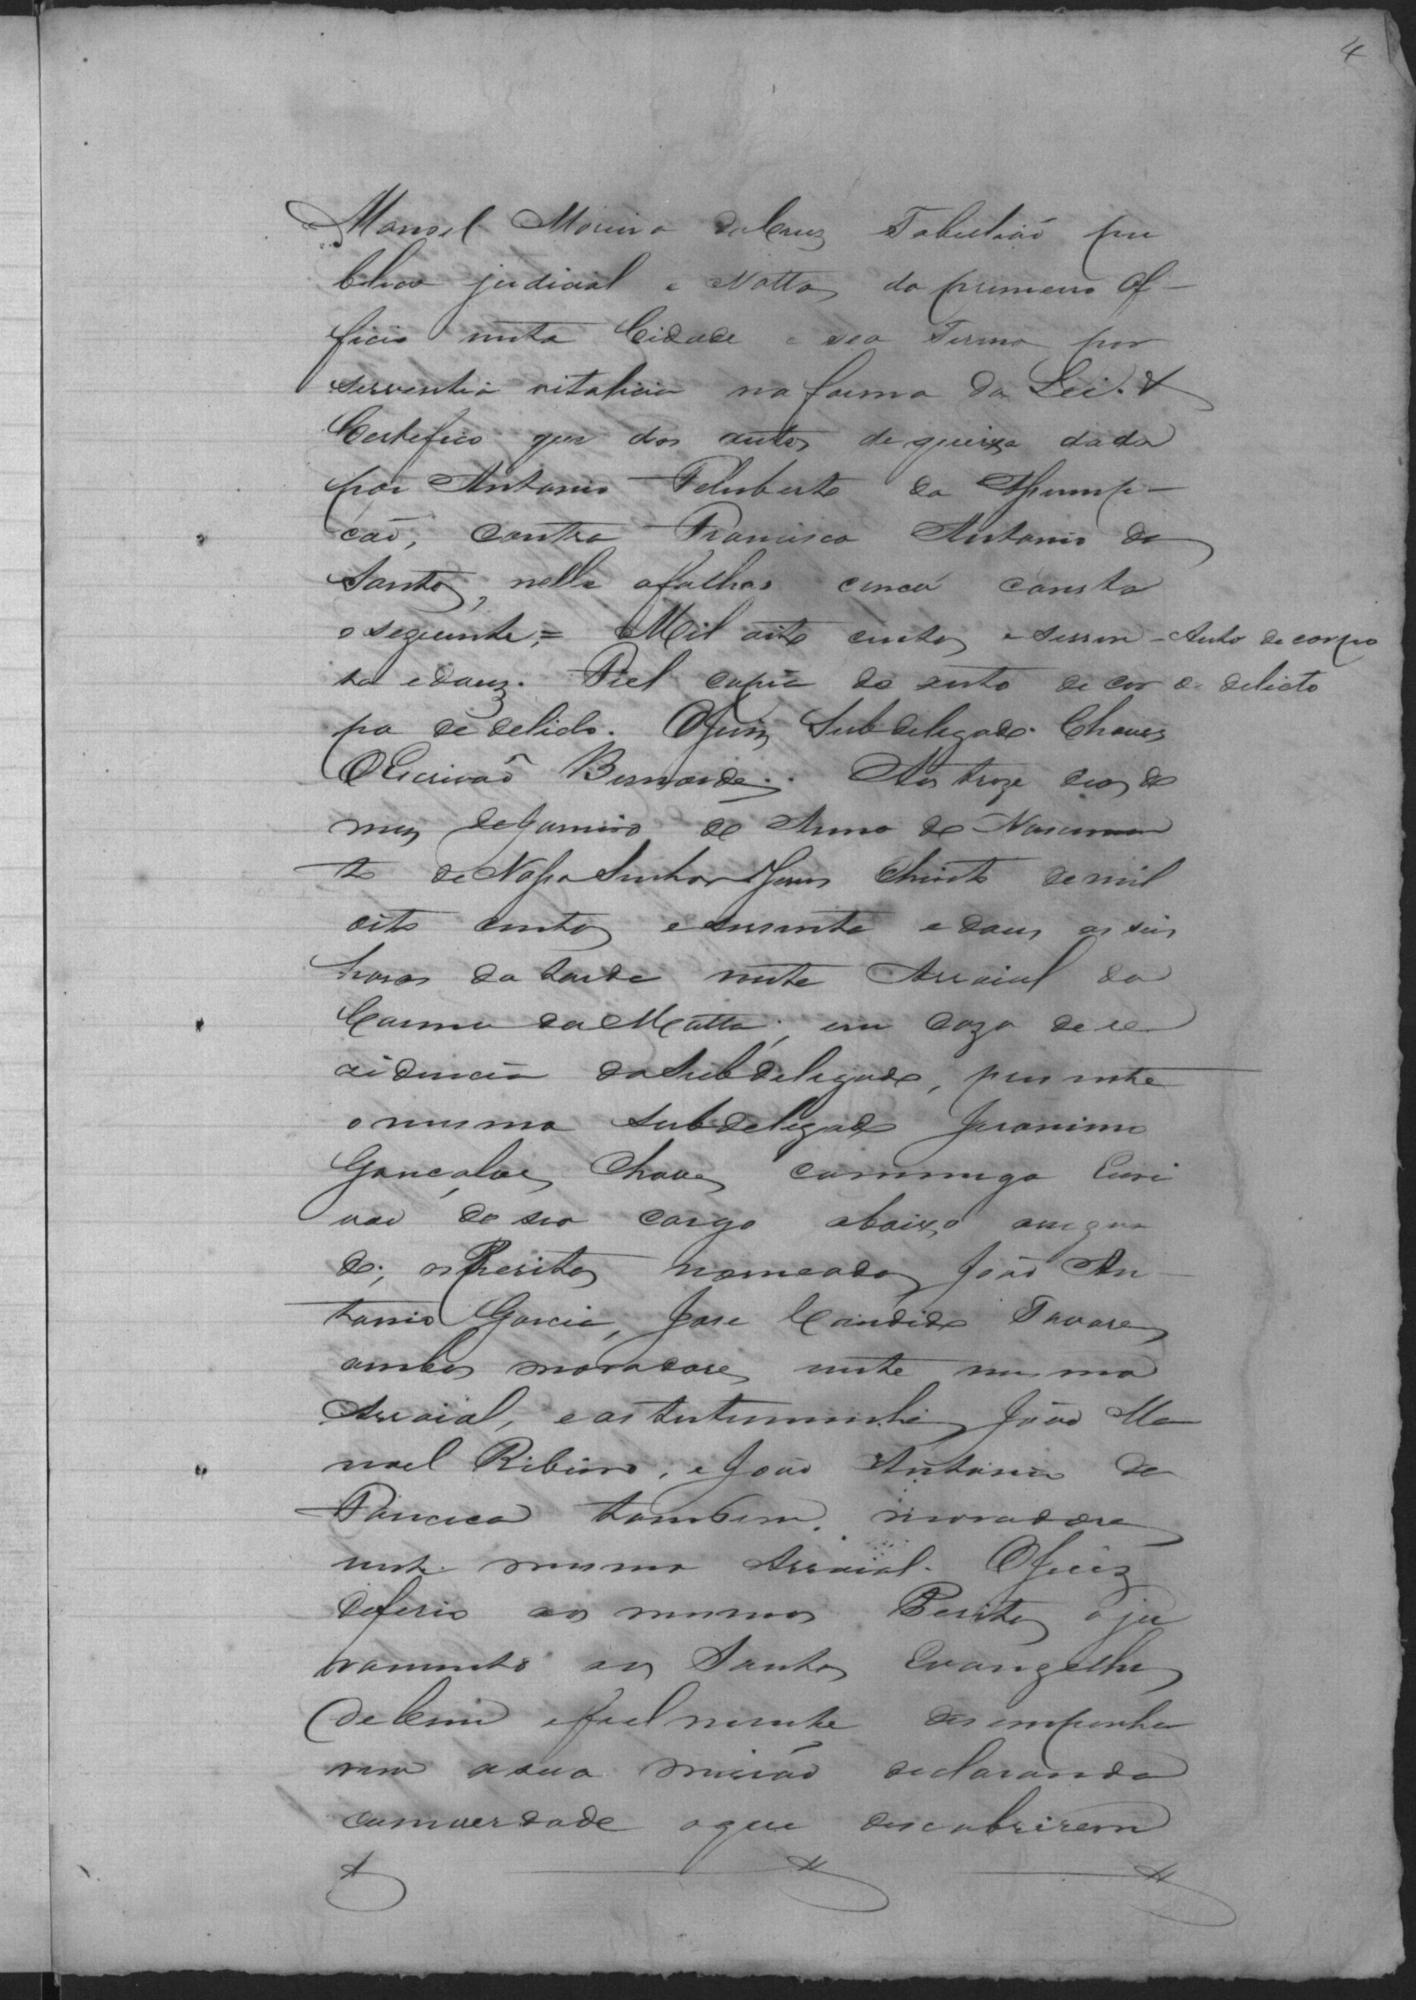 4
Manoel Moreira da Cruz Tabeliaõ pu
blico judicial e Nottas do primeiro Of-
ficio nesta Cidade e seo Termo por
serventia vitalicia na forma da Lei. &
Certefico que dos autos de queixa dada
por Antonio Feluberto da Assump-
caõ, contra Francisco Antonio dos
Santos, nelle afolhas cinco consta
o seguinte, = Mil oito centos e sessen -
Auto de corpo
ta e dous. Fiel copia do auto de cor
de delicto
po de delicto. O Juis Subdelegado. Chaves
O Escrivaõ Bernardes. Aos treze dias do
mes de Janeiro do Anno do Nascimen
to de Nosso Senhor Jesus Christo de mil
oito centos e sessenta e dous as seis
horas da tarde neste Arraial do
Carmo da Matta, em caza de re
zidencia do Subdelegado, perante
o mesmo Subdelegado Jeronimo
Goncalves Chaves commigo Escri
vaõ do seo cargo abaixo assigna
do, os Peritos nomeados Joaõ An-
tonio Garcia, Jose Candido Tavares
ambos moradores neste mesmo
Arraial, e as testemunhas Joaõ Ma
noel Ribeiro, e Joaõ Antonio da
Fonceca tambem moradores
neste mesmo Arraial. O Juiz
deferio aos mesmos Peritos o ju
ramento aos Santos Evangelhos
de bem e fielmente desempenha
rem a sua missaõ declarando
com verdade o que descobrirem